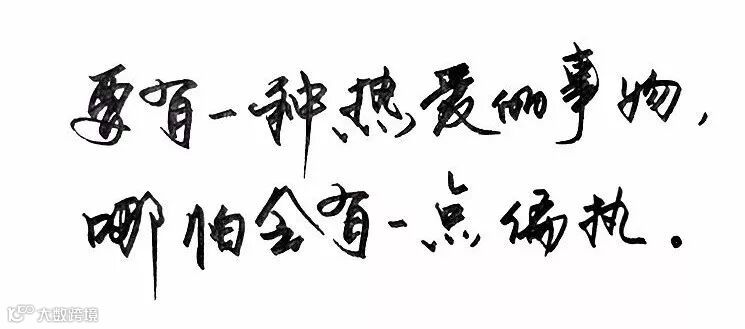 要有一种热爱的事物，
哪怕会有一点偏执。
大数跨境